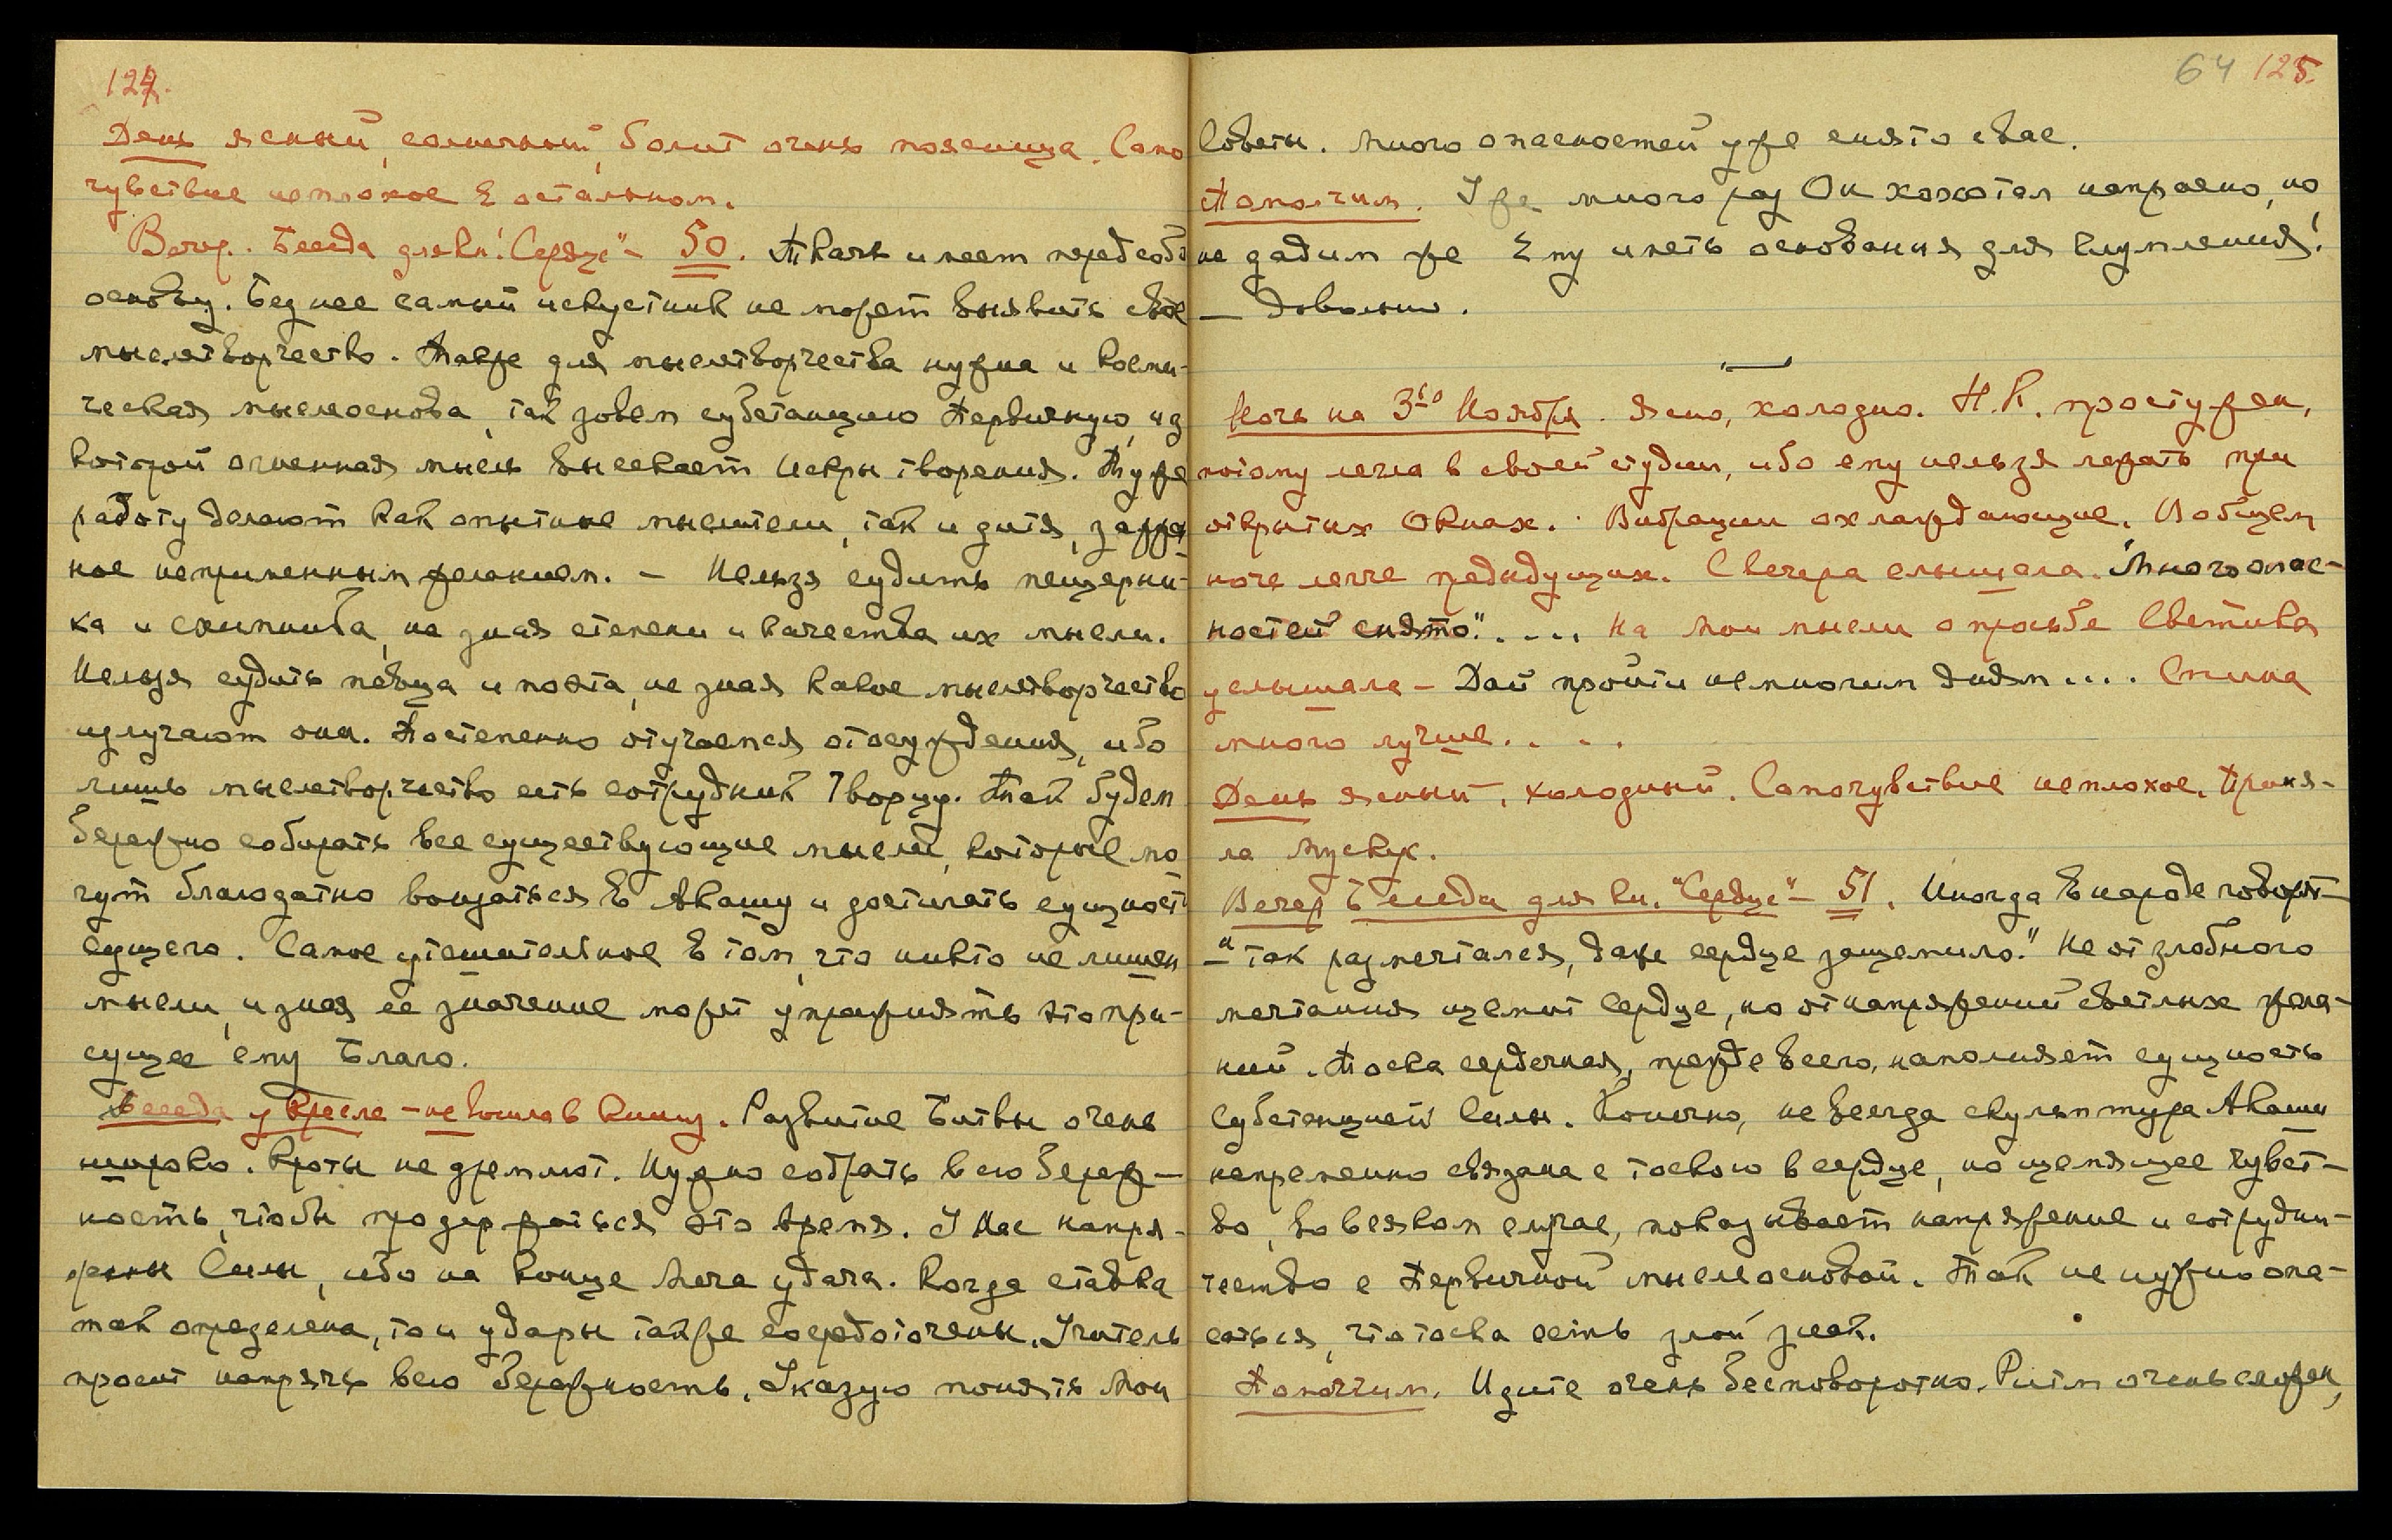 124.
День ясный, солнечный, болит очень поясница. Само
чувствие неплохое в остальном.
Вечер. Беседа для кн. "Сердце" – 50. Ткачь имеет перед собой
основу. Без нее самый искустник не может выявить свое
мыслетворчество. Также для мыслетворчества нужна и косми-
ческая мыслеоснова, так зовем субстанцию Первичную, из
которой огненная мысль высекает Искры творения. Ту же
работу делают как опытные мыслители, так и дитя,
ное непременным желанием. – Нельзя судить пещерни-
ка и скимника, не зная степени и качества их мысли.
Нельзя судить певца и поэта, не зная какое мыслетворчество
излучают они. Постепенно отучаемся от осуждения, ибо
лишь мыслетворчество есть сотрудник Творцу. Так будем
бережно собирать все существующие мысли, которые мо
гут благодатно вонзаться в Акашу и достигать сущность
сущего. Самое утешительное в том, что никто не лишен
мысли, и зная ее значение может упражнять это при-
сущее ему Благо.
Беседа у Кресле – не вошла в книгу. Развитие Битвы очень
широко. Кроты не дремлют. Нужно собрать всю береж-
ность, чтобы продержаться это время. У Нас напря-
жены Силы, ибо на Конце Меча удача. Когда ставка
так определена, то и удары также сосредоточены. Учитель
просит напрячь всю бережность. Указую понять Мои
64 125.
Советы. Много опасностей уже снято с Вас.
Помолчим. Уже много раз Он хохотал напрасно, но
не дадим же Ему иметь основания для глумления!
– Довольно.
Ночь на 3го Ноября. Ясно, холодно. Н.К. простужен,
потому легла в своей студии, ибо ему нельзя лежать при
открытых Окнах. Вибрации охлаждающие. В общем
ноче легче предидущих. С вечера слышала. "Много опас-
ностей снято." .... На мои мысли о просьбе Светика
услышала – Дай пройти немногим дням .... Спина
много лучше. . . .
День ясный, холодный. Самочувствие неплохое. Приня-
ла Мускус.
Вечер Беседа для кн. "Сердце" – 51. Иногда в народе говорят –
– "так размечтался, даже сердце защемило." Не от злобного
мечтания щемит сердце, но от напряжений светлых жела-
ний. Тоска сердечная, прежде всего, наполняет сущность
Субстанцией Силы. Конечно, не всегда скульптура Акаши
непременно связана с тоскою в сердце, но щемящее чувст-
во, во всяком случае, показывает напряжение и сотрудни-
чество с Первичной мыслеосновой. Так не нужно опа-
саться, что тоска есть злой знак.
Помолчим. Идите очень бесповоротно. Ритм очень сложен,